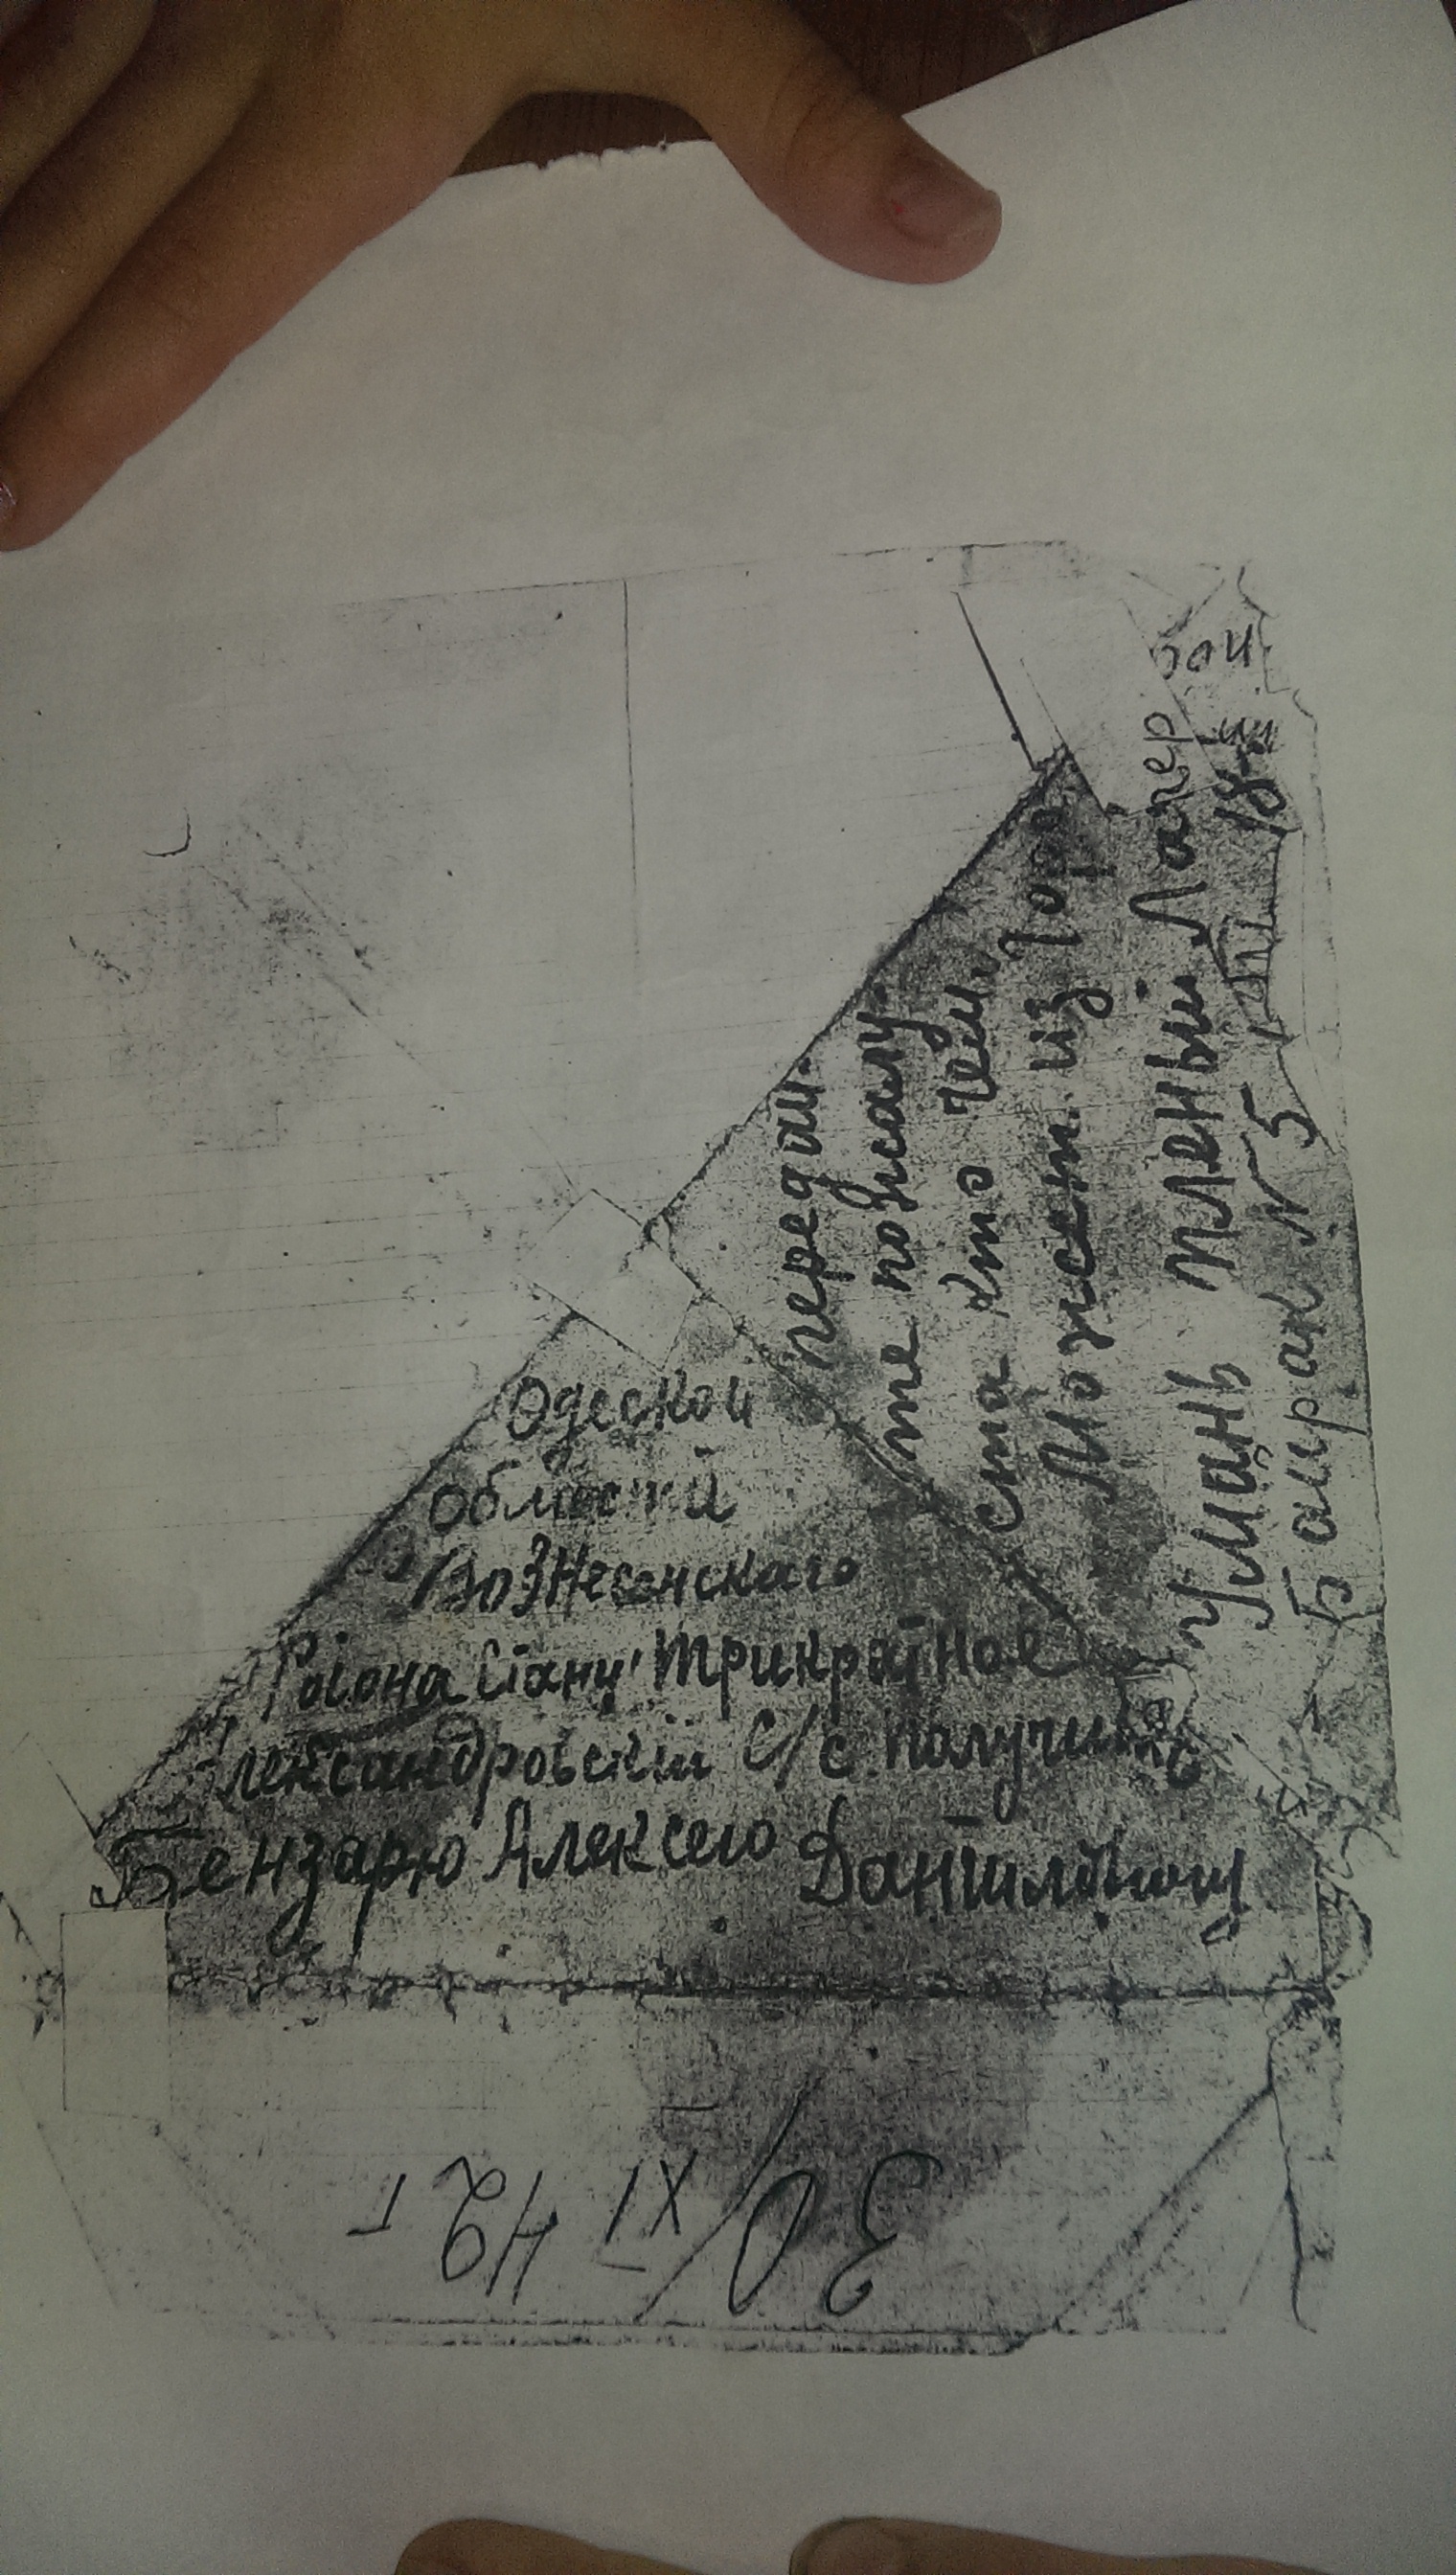 Одеской
области
Вознесенскаго
Раіона Станц. Трикратное
лександровскій С/с. получить
Бензарю Алексею Даниловичу
передай
те пожалу
ста кто чем
Может из Гор
Умань пленый Лагер
Баирак № 5
18
30/XI 42 г